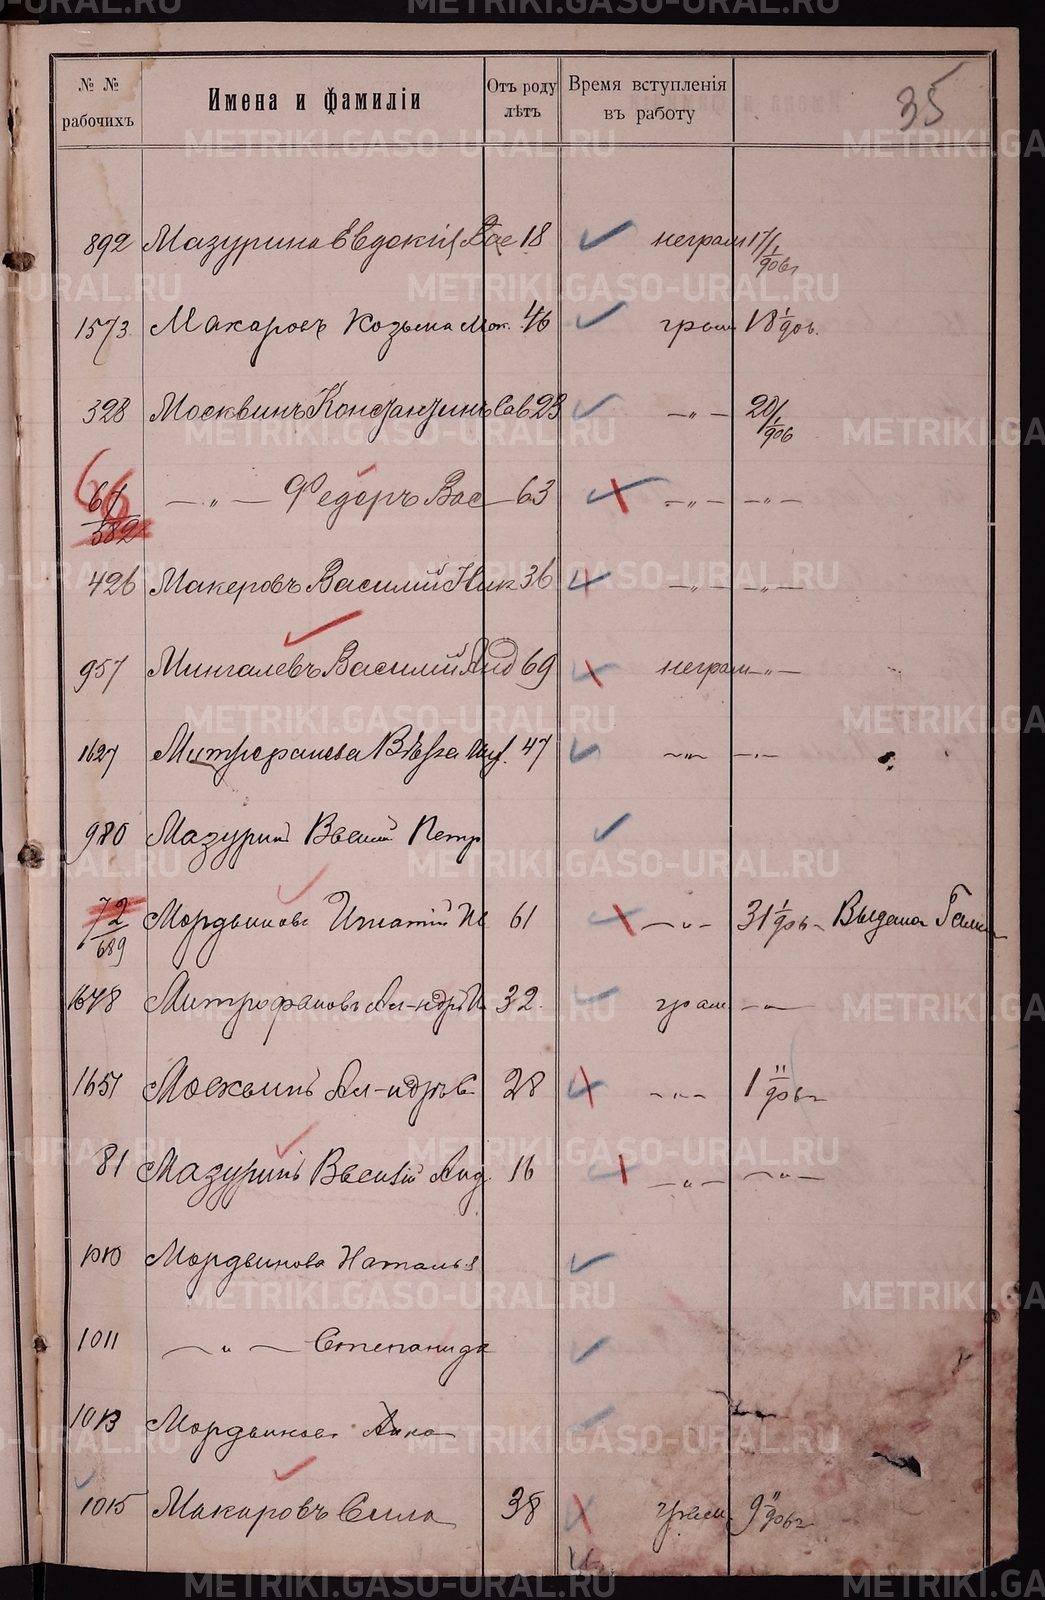 35
№ № рабочихъ Имена и фамиліи Отъ роду лѣтъ Время вступленія въ работу
892 Мазурина Евдокія Вас 18 неграм 17/1 906г
1573 Макаровъ Козьма 46 грам 18 1/906.
328 Москвинъ Константинъ Сав 23 —„— 20/1 906
66 61 582 —„— Федоръ Вас 63 —„— —„—
426 Макеровъ Василій Ник 36 —„— —„—
957 Мингалевъ Василій Анд 69 неграм —„—
1627 Митрофанова Вѣра 47 —„— —„—
980 Мазурин Вьений Петр
72 689 Мордвинова Игнатій Ив 61 —„— 31 1/906 Выдана
1648 Митрофановъ Ал-ндръ И 32 грам —„—
1651 Москвинъ Ал-ндръ С 28 —„— 1 11/906г
81 Мазуринъ Анд. 16 —„— —„—
1010 Мордвинова Наталья
1011 —„— Степанида
1013 Мордвинова Анна
1015 Макаровъ Сила 38 грам 9 11/906г
METRIKI.GASO-URAL.RU